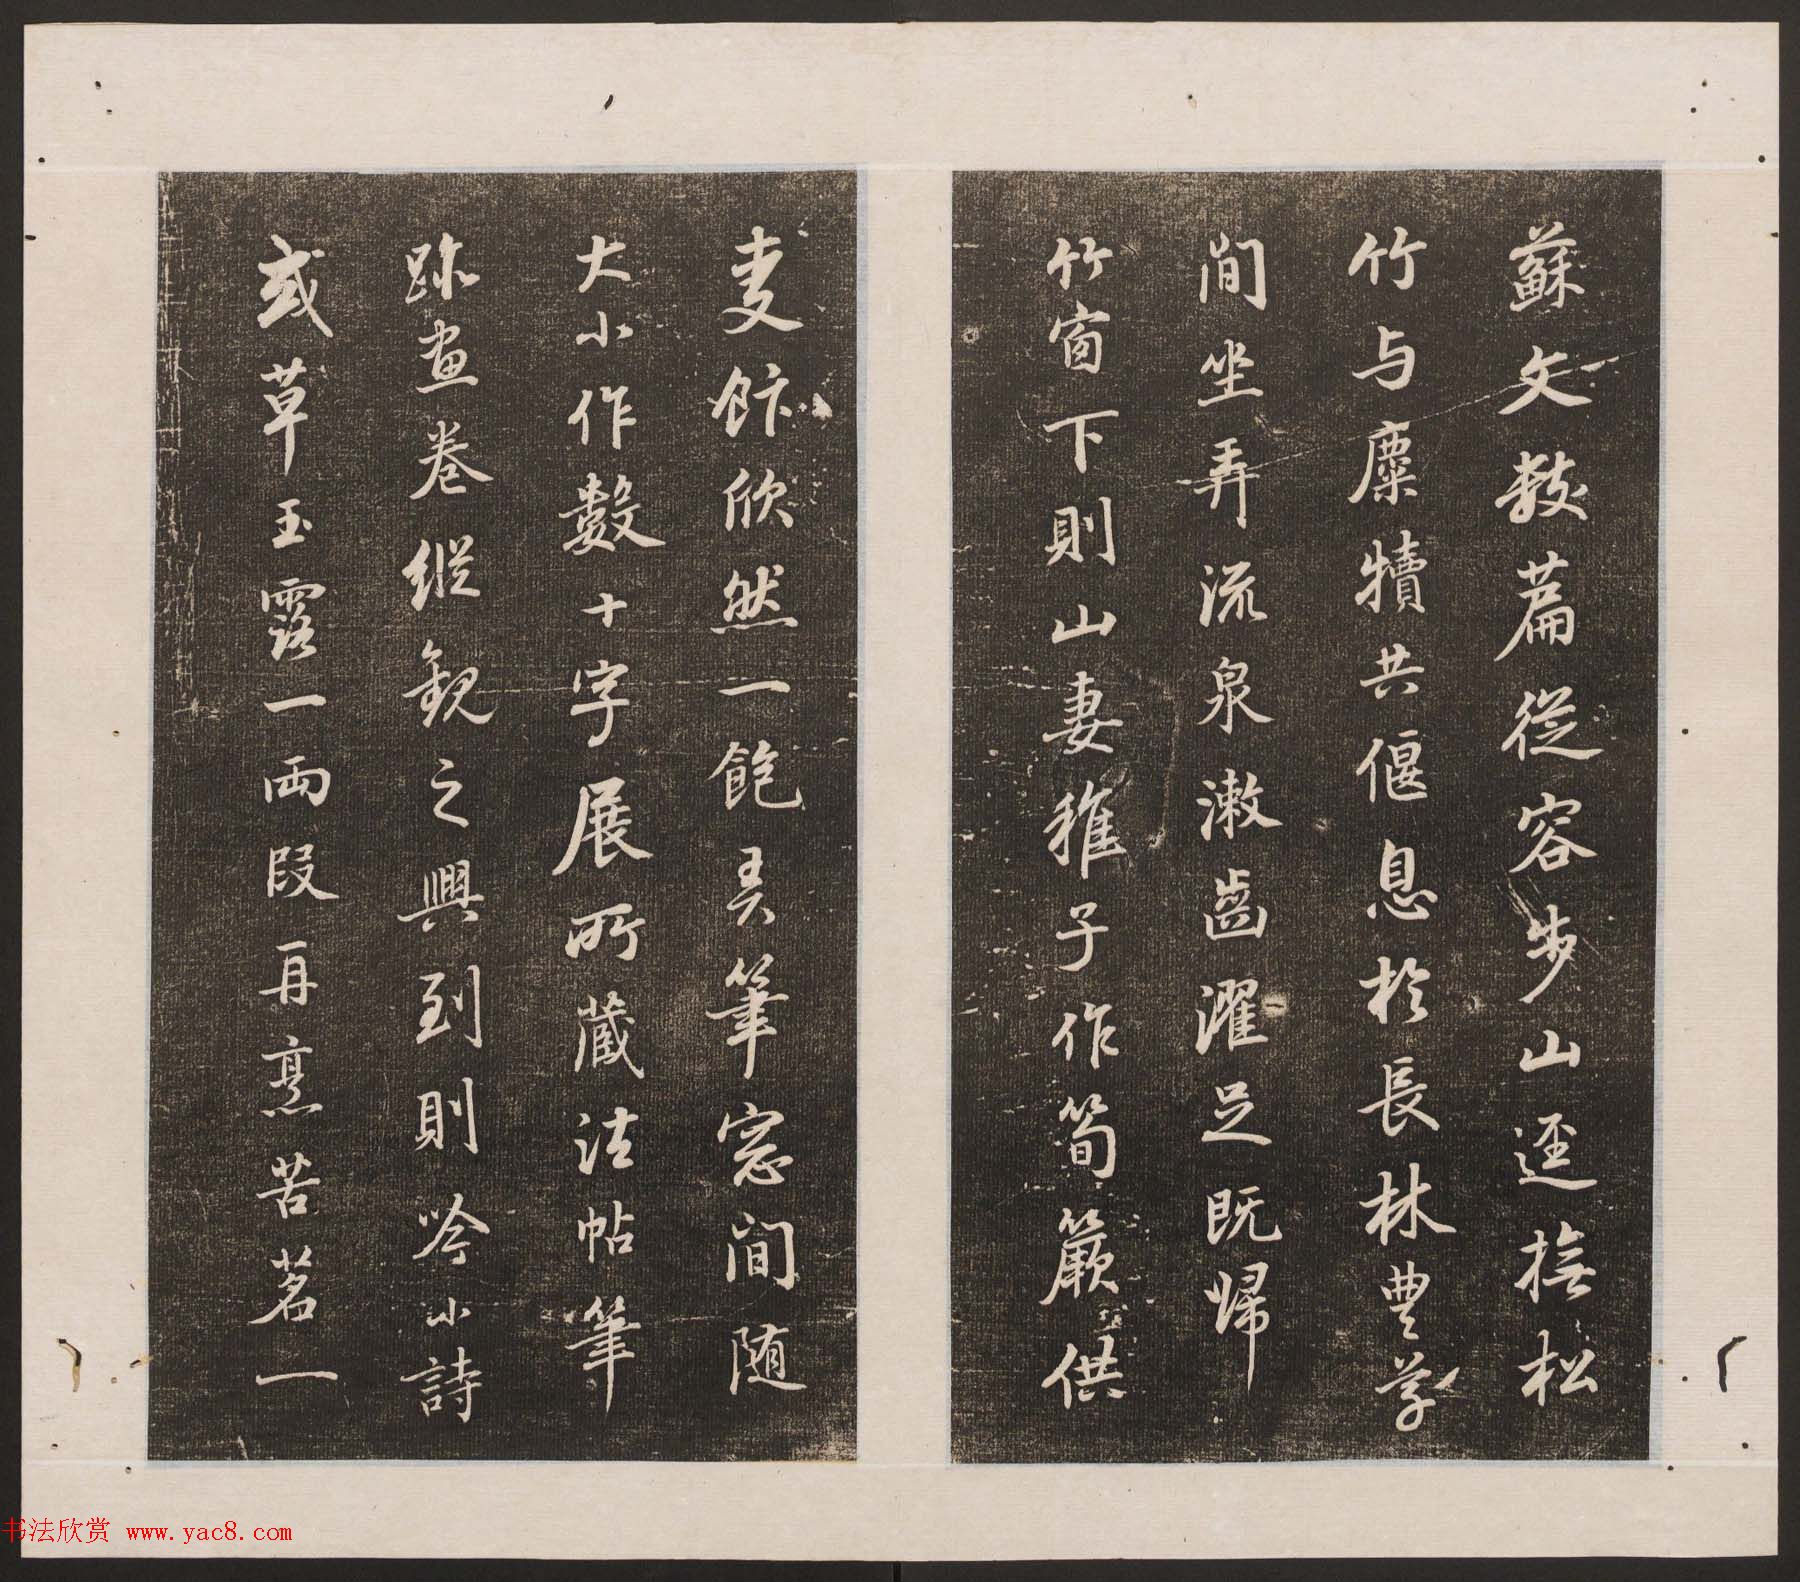 蘇文数篇從容步山逕撫松
竹与麋犢共偃息扵長林豊草
間坐弄流泉漱齒濯足既歸
竹窗下則山妻稚子作筍蕨供
麦飰欣然一飽弄筆窓間随
大小作數十字展所蔵法帖筆
跡畫卷縱觀之興到則吟小詩
或草玉露一兩段再烹苦茗一
书法欣赏 www.yac8.com